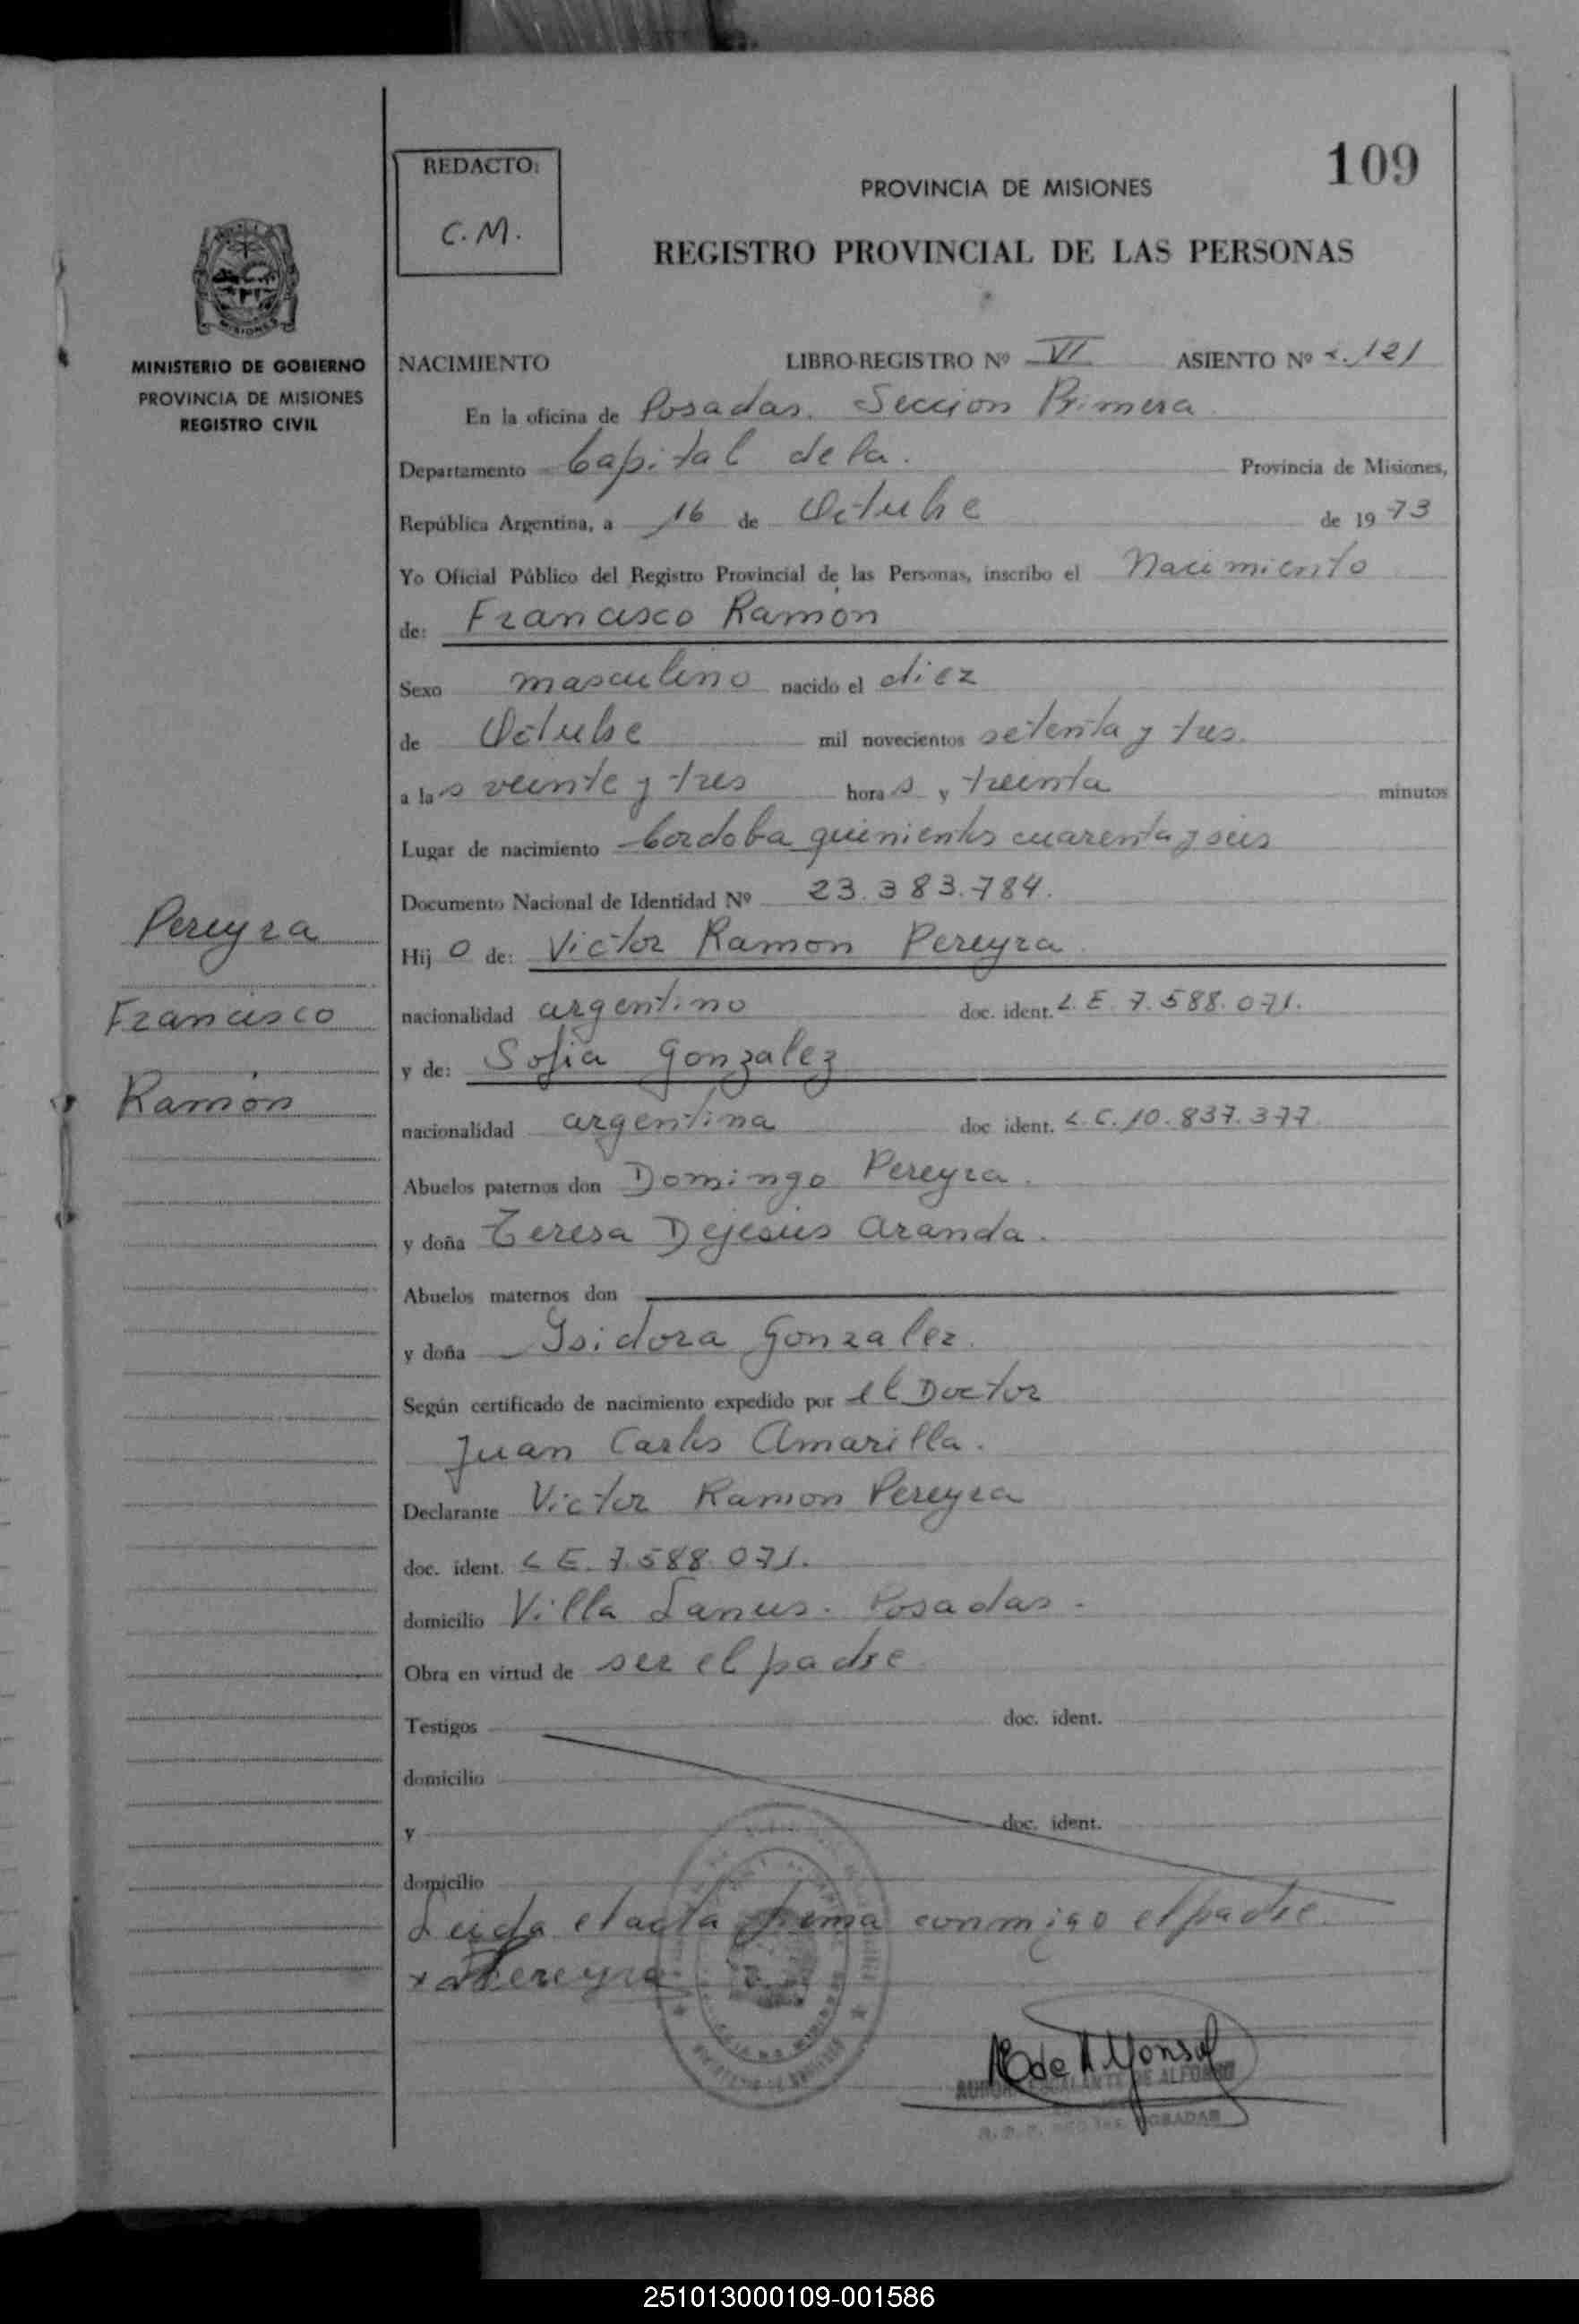 109
REDACTO:
C.M.
PROVINCIA DE MISIONES
REGISTRO PROVINCIAL DE LAS PERSONAS
MINISTERIO DE GOBIERNO
PROVINCIA DE MISIONES
REGISTRO CIVIL
NACIMIENTO LIBRO-REGISTRO Nº VI ASIENTO Nº 2.121
En la oficina de Posadas. Seccion Primera
Departamento Capital de la. Provincia de Misiones,
República Argentina, a 16 de Octubre de 1973
Yo Oficial Público del Registro Provincial de las Personas, inscribo el Nacimiento
de: Francisco Ramón
Sexo masculino nacido el diez
de Octubre mil novecientos setenta y tres.
a las veinte y tres horas y treinta minutos
Lugar de nacimiento Cordoba quinientos cuarenta y seis
Documento Nacional de Identidad Nº 23.383.784.
Pereyra
Francisco
Ramón
Hijo de: Victor Ramon Pereyra
nacionalidad argentino doc. ident. L.E. 7.588.071.
y de: Sofia Gonzalez
nacionalidad argentina doc ident. L.C. 10.837.377
Abuelos paternos don Domingo Pereyra.
y doña Teresa Dejesús Aranda.
Abuelos maternos don
y doña Ysidora Gonzalez.
Según certificado de nacimiento expedido por el Doctor
Juan Carlos Amarilla.
Declarante Victor Ramon Pereyra
doc. ident. L E. 7.588.071.
domicilio Villa Lanus. Posadas.
Obra en virtud de ser el padre
Testigos doc. ident.
domicilio
y doc. ident.
domicilio
Leida el acta firma conmigo el padre.
x Pereyra
de Alfonso
DE ALFONSO
POSADAS
251013000109-001586